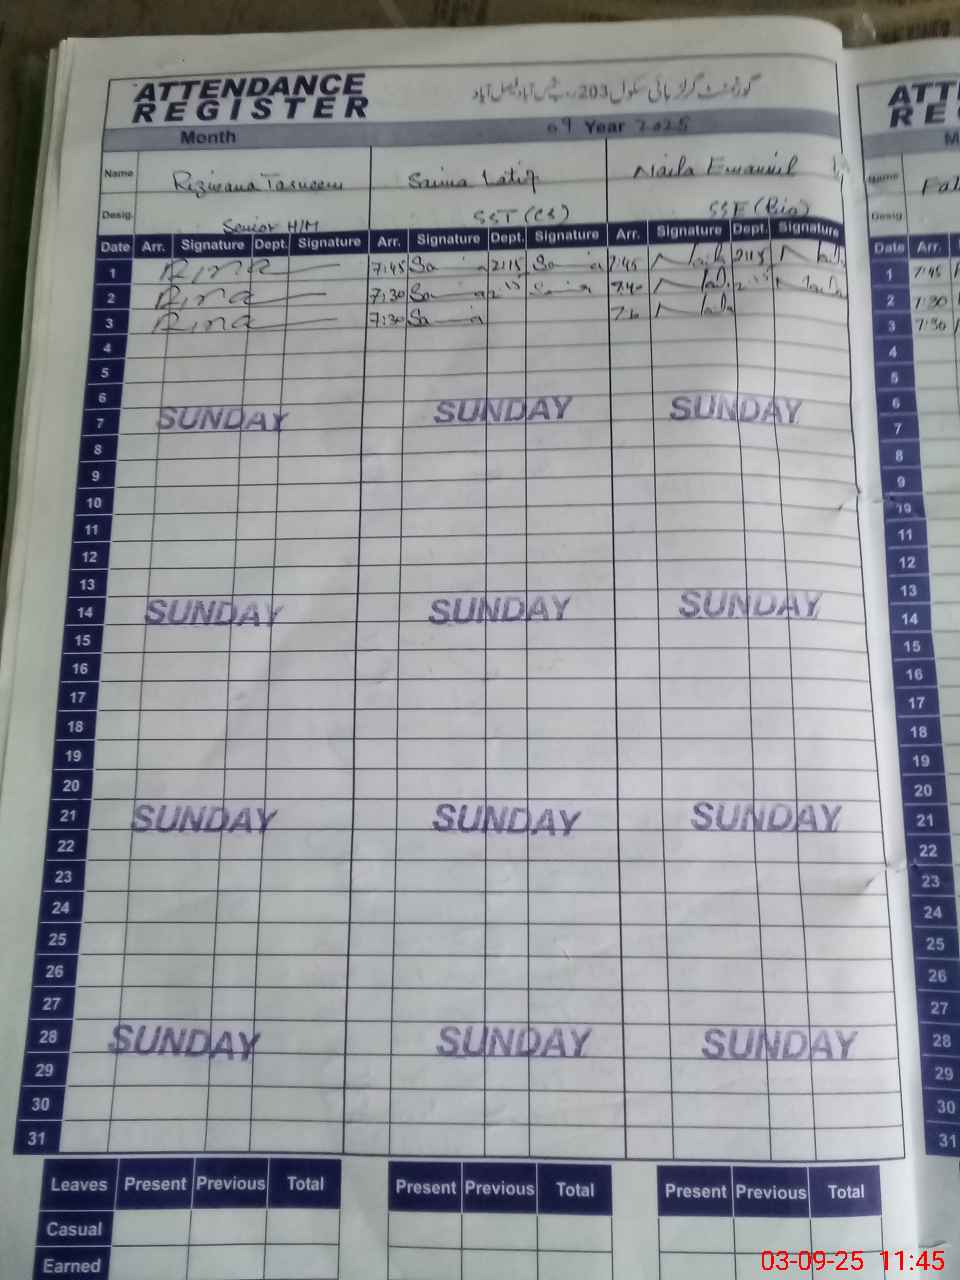 ATTENDANCE REGISTER
گورنمنٹ گرلز ہائی سکول 203
Month 09 Year 2025
Name Rizwana Tasneem Saima Latif Naila Emanuel
Desig. Senior H/M SST (CS) SSE (Bio)
Date Arr. Signature Dept. Signature Arr. Signature Dept. Signature Arr. Signature Dept. Signature
1 7:45 2:15 7:45 2:15
2 7:30 2:15 7:40 2:15
3 7:30
4
5
6
7 SUNDAY SUNDAY SUNDAY
8
9
10
11
12
13
14 SUNDAY SUNDAY SUNDAY
15
16
17
18
19
20
21 SUNDAY SUNDAY SUNDAY
22
23
24
25
26
27
28 SUNDAY SUNDAY SUNDAY
29
30
31
Leaves Present Previous Total Present Previous Total Present Previous Total
Casual
Earned
ATT
RE
M
Name
Desig.
Date Arr.
1 7:45
2 7:30
3 7:30
4
5
6
7
8
9
10
11
12
13
14
15
16
17
18
19
20
21
22
23
24
25
26
27
28
29
30
31
03-09-25 11:45